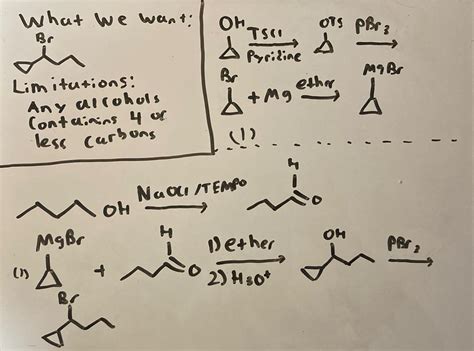 What we want:
Br
Limitations:
Any alcohols
Containing 4 or
less carbons
OH TSCl OTS PBr3
Pyridine
Br ether MgBr
+ Mg
(1)
OH NaOCl/TEMPO H
O
MgBr H OH
(1) + O 1) ether PBr3
2) H3O+
Br